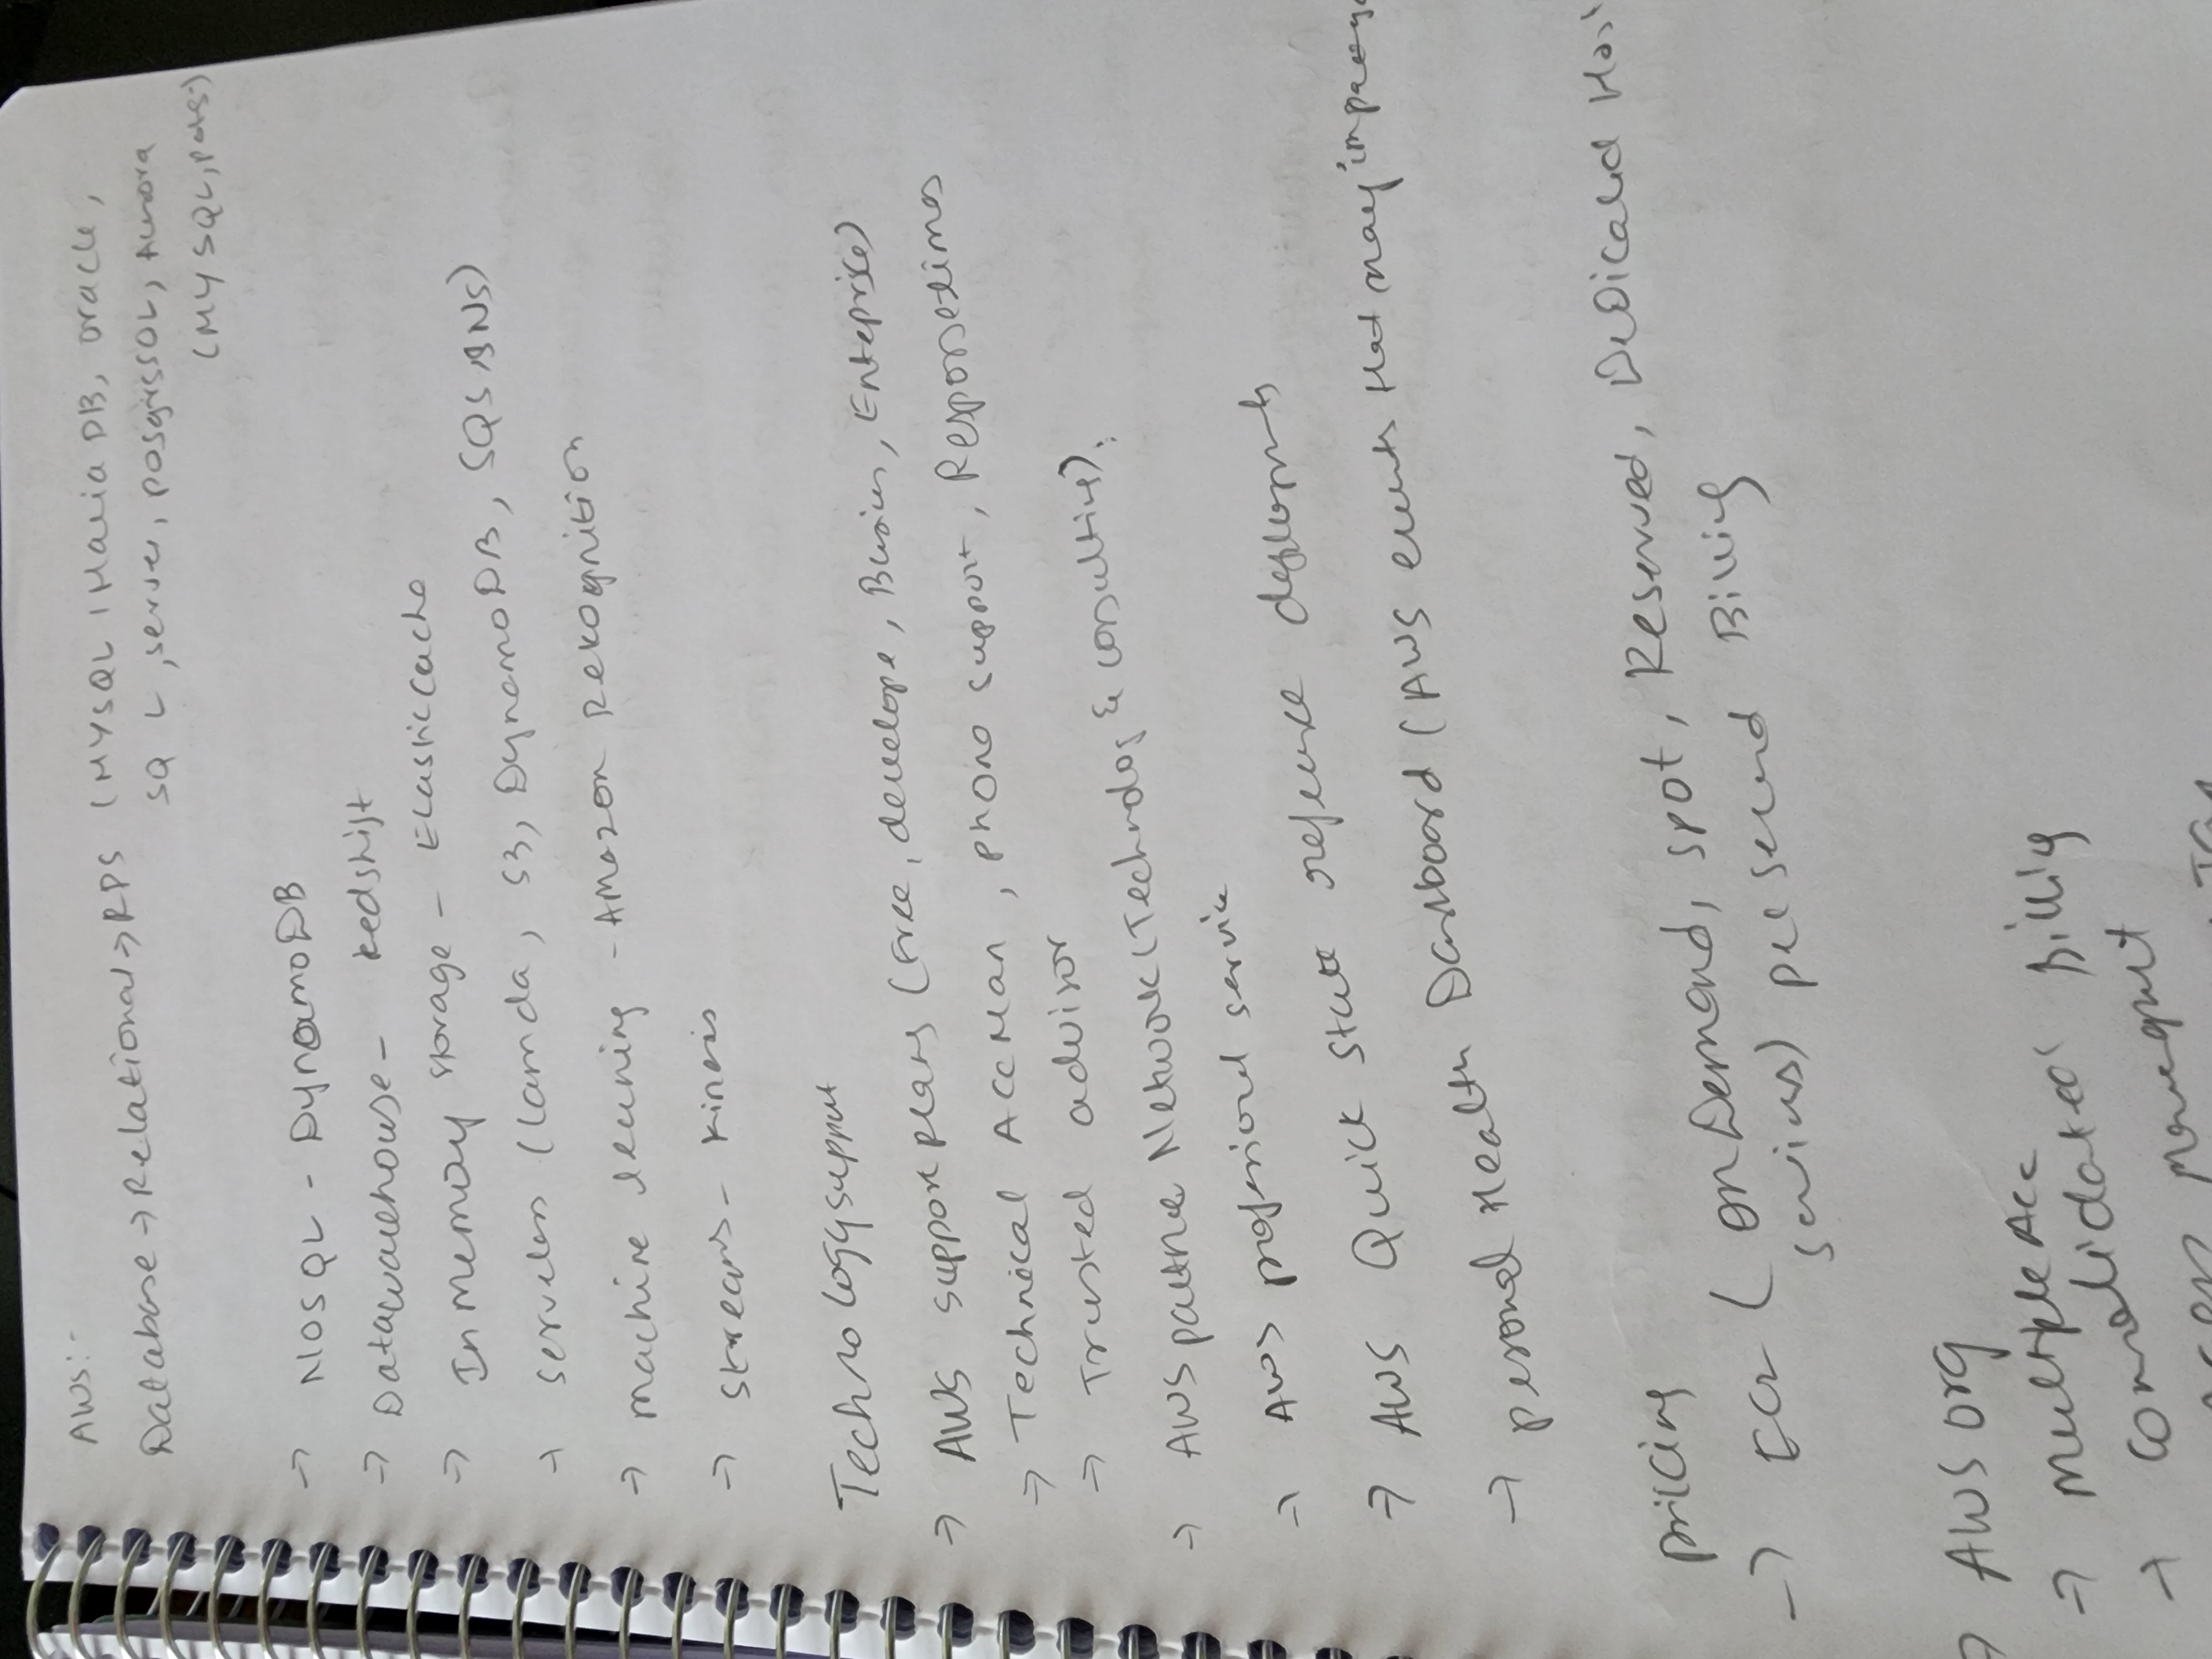 AWS:-
Database → Relational → RDS (MYSQL, Maria DB, oracle,
SQL, server, posgrsSQL, Aurora
(MYSQL, potg.)
→ NOSQL - DynamoDB
→ Datawarehouse - Redshift
→ In memory storage - Elasticcache
→ serverless (lamda, S3, DynamoDB, SQS, SNS)
→ machine learning - Amazon Rekognition
→ streams - kinesis
Technology support
→ AWS support plans (Free, develope, Business, Enteprise)
→ Technical Acc Man, phone support, Response times
→ Trusted advisor
→ AWS partner Network (Technology & consulting).
→ AWS professional service
→ AWS Quick start reference deployments
→ personal Health Dashboard (AWS events that may
pricing
→ EC2 (on Demand, spot, Reserved, Dedicated Host
savings) per second Billing
→ AWS org
→ Multiple Acc
→ Consolidated Billing